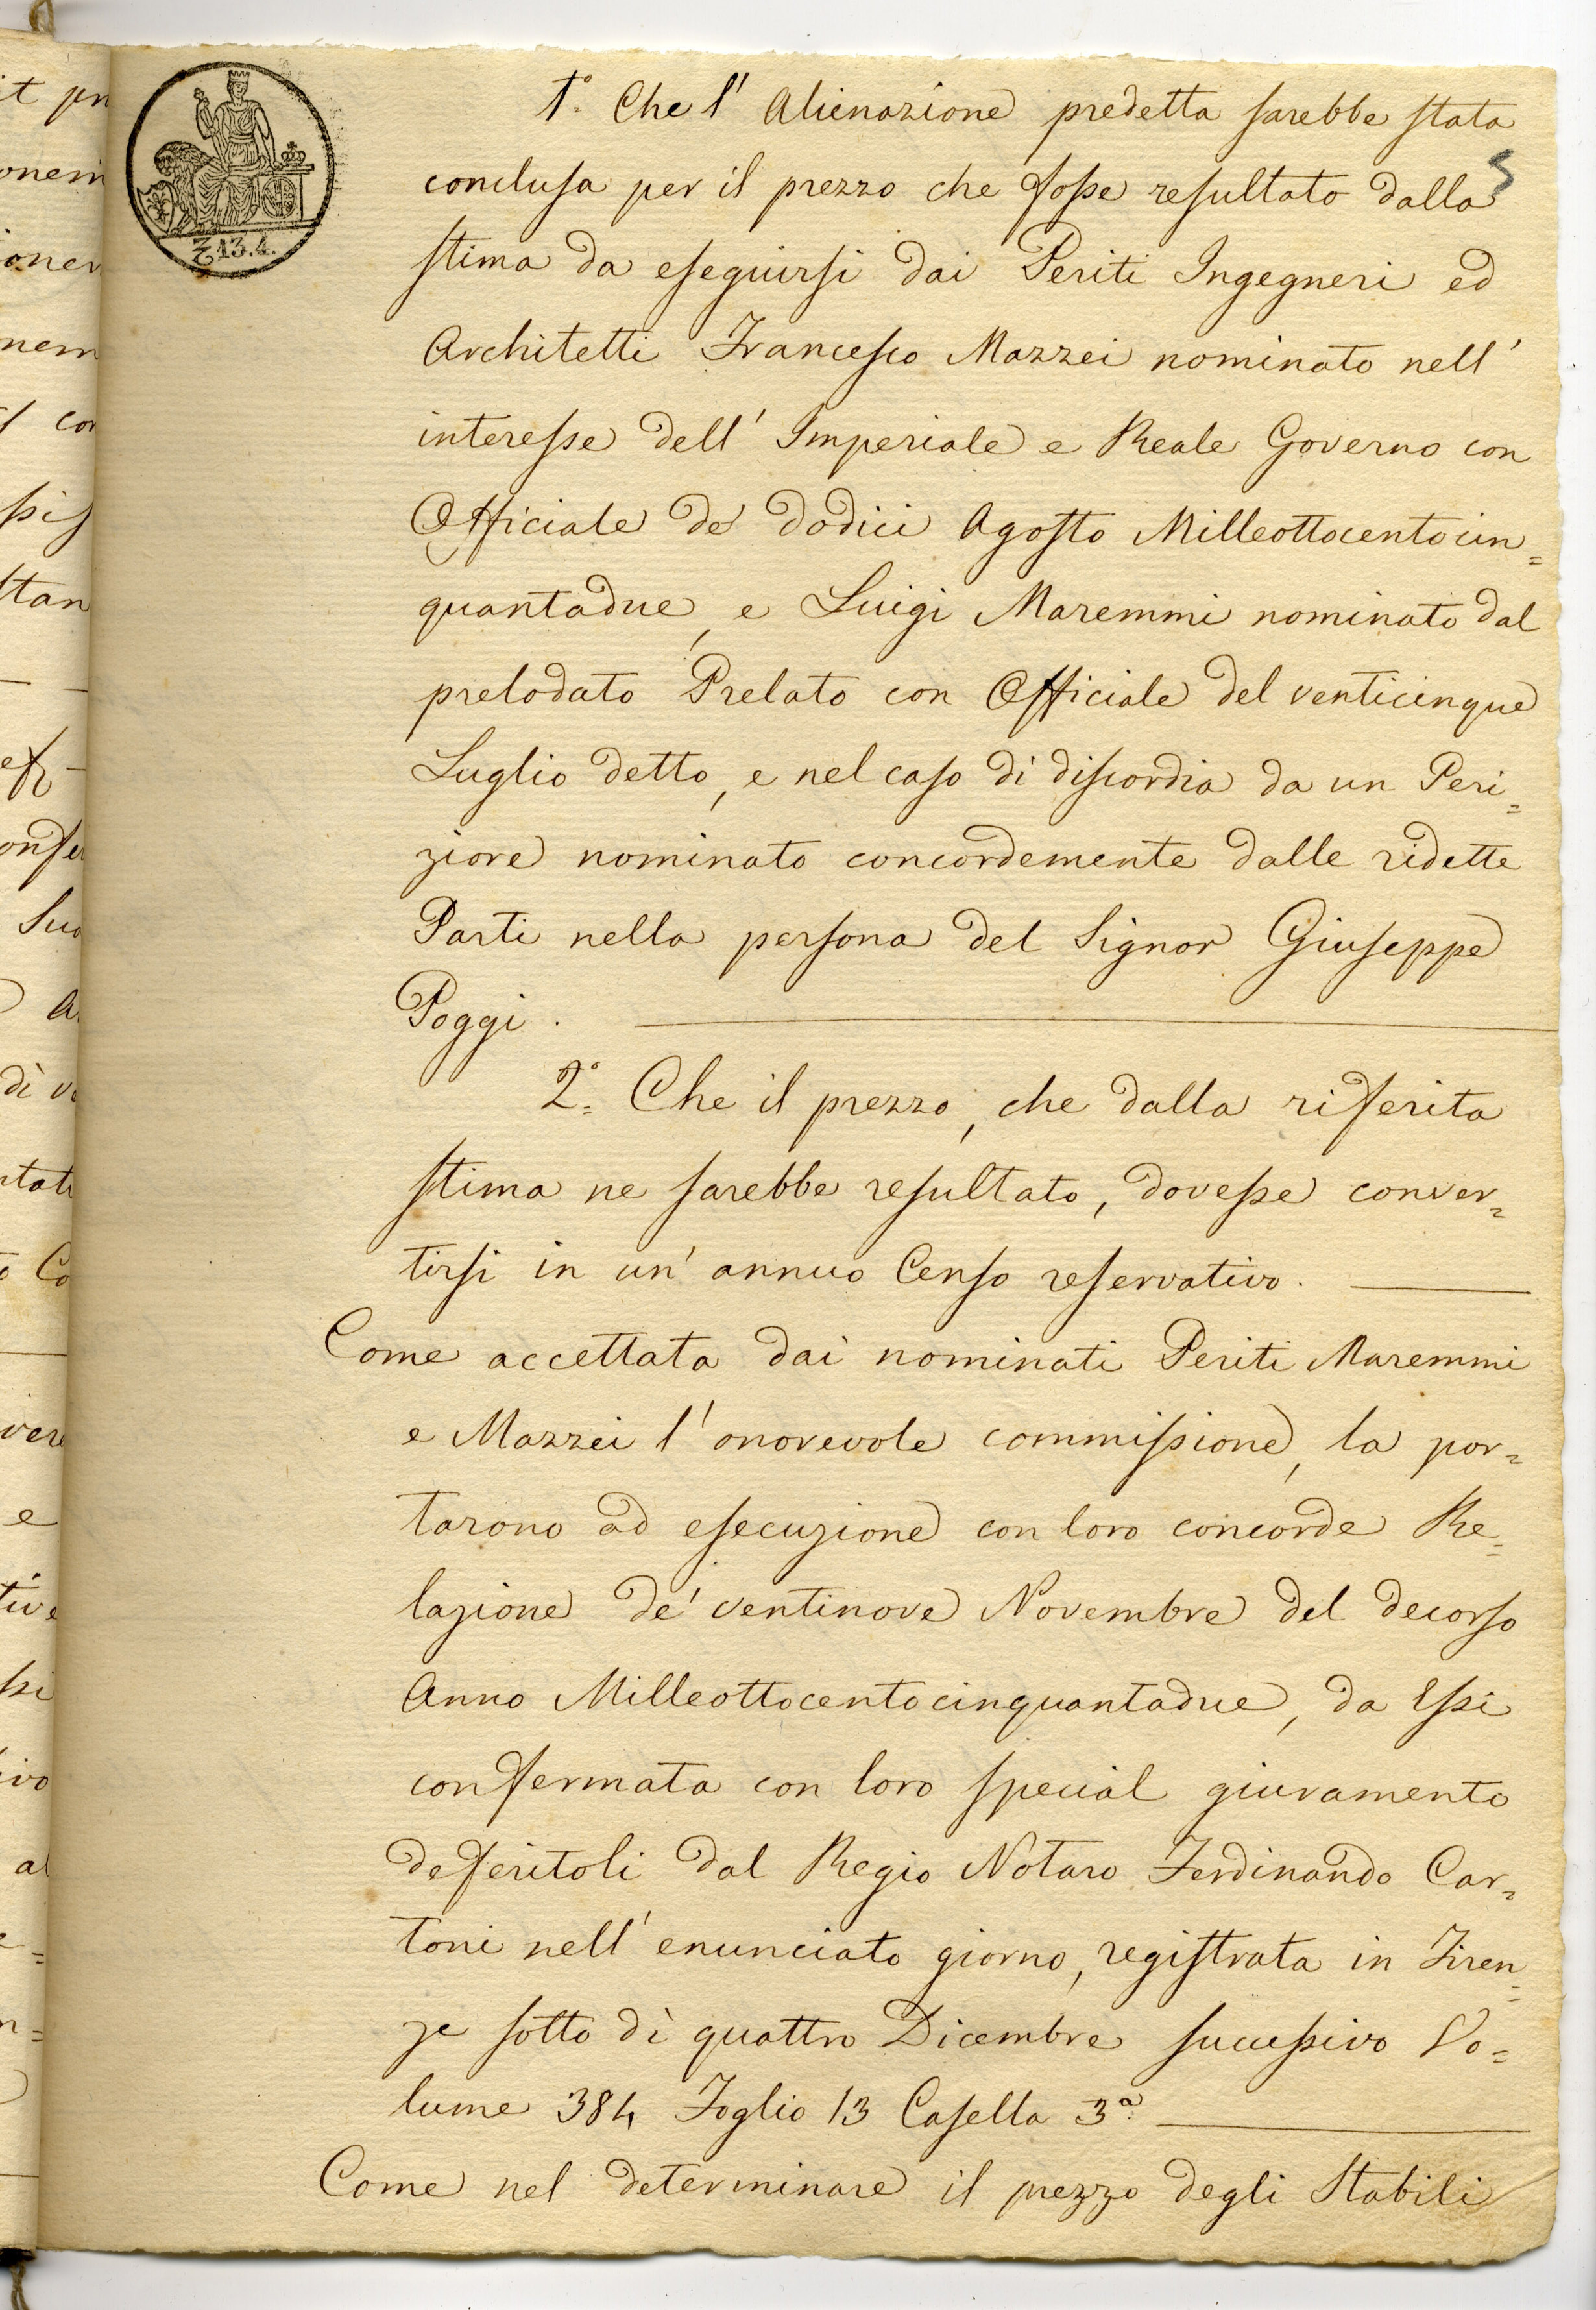 1.° Che l' Alienazione predetta sarebbe stata
conclusa per il prezzo che fosse resultato dalla
stima da eseguirsi dai Periti Ingegneri ed
Architetti Francesco Mazzei nominato nell'
interesse dell' Imperiale e Reale Governo con
Officiale de' dodici Agosto Milleottocentocin=
quantadue, e Luigi Maremmi nominato dal
prelodato Prelato con Officiale del venticinque
Luglio detto, e nel caso di discordia da un Peri=
ziore nominato concordemente dalle ridette
Parti nella persona del Signor Giuseppe
Poggi.
2.° Che il prezzo, che dalla riferita
stima ne sarebbe resultato, dovesse conver=
tirsi in un' annuo Censo reservativo.
Come accettata dai nominati Periti Maremmi
e Mazzei l' onorevole commissione, la por=
tarono ad esecuzione con loro concorde Re=
lazione de' ventinove Novembre del decorso
Anno Milleottocentocinquantadue, da Essi
confermata con loro special giuramento
deferitoli dal Regio Notaro Ferdinando Car=
toni nell' enunciato giorno, registrata in Firen=
ze sotto dì quattro Dicembre successivo Vo=
lume 384 Foglio 13 Casella 3.ª
Come nel determinare il prezzo degli Stabili
13.4.